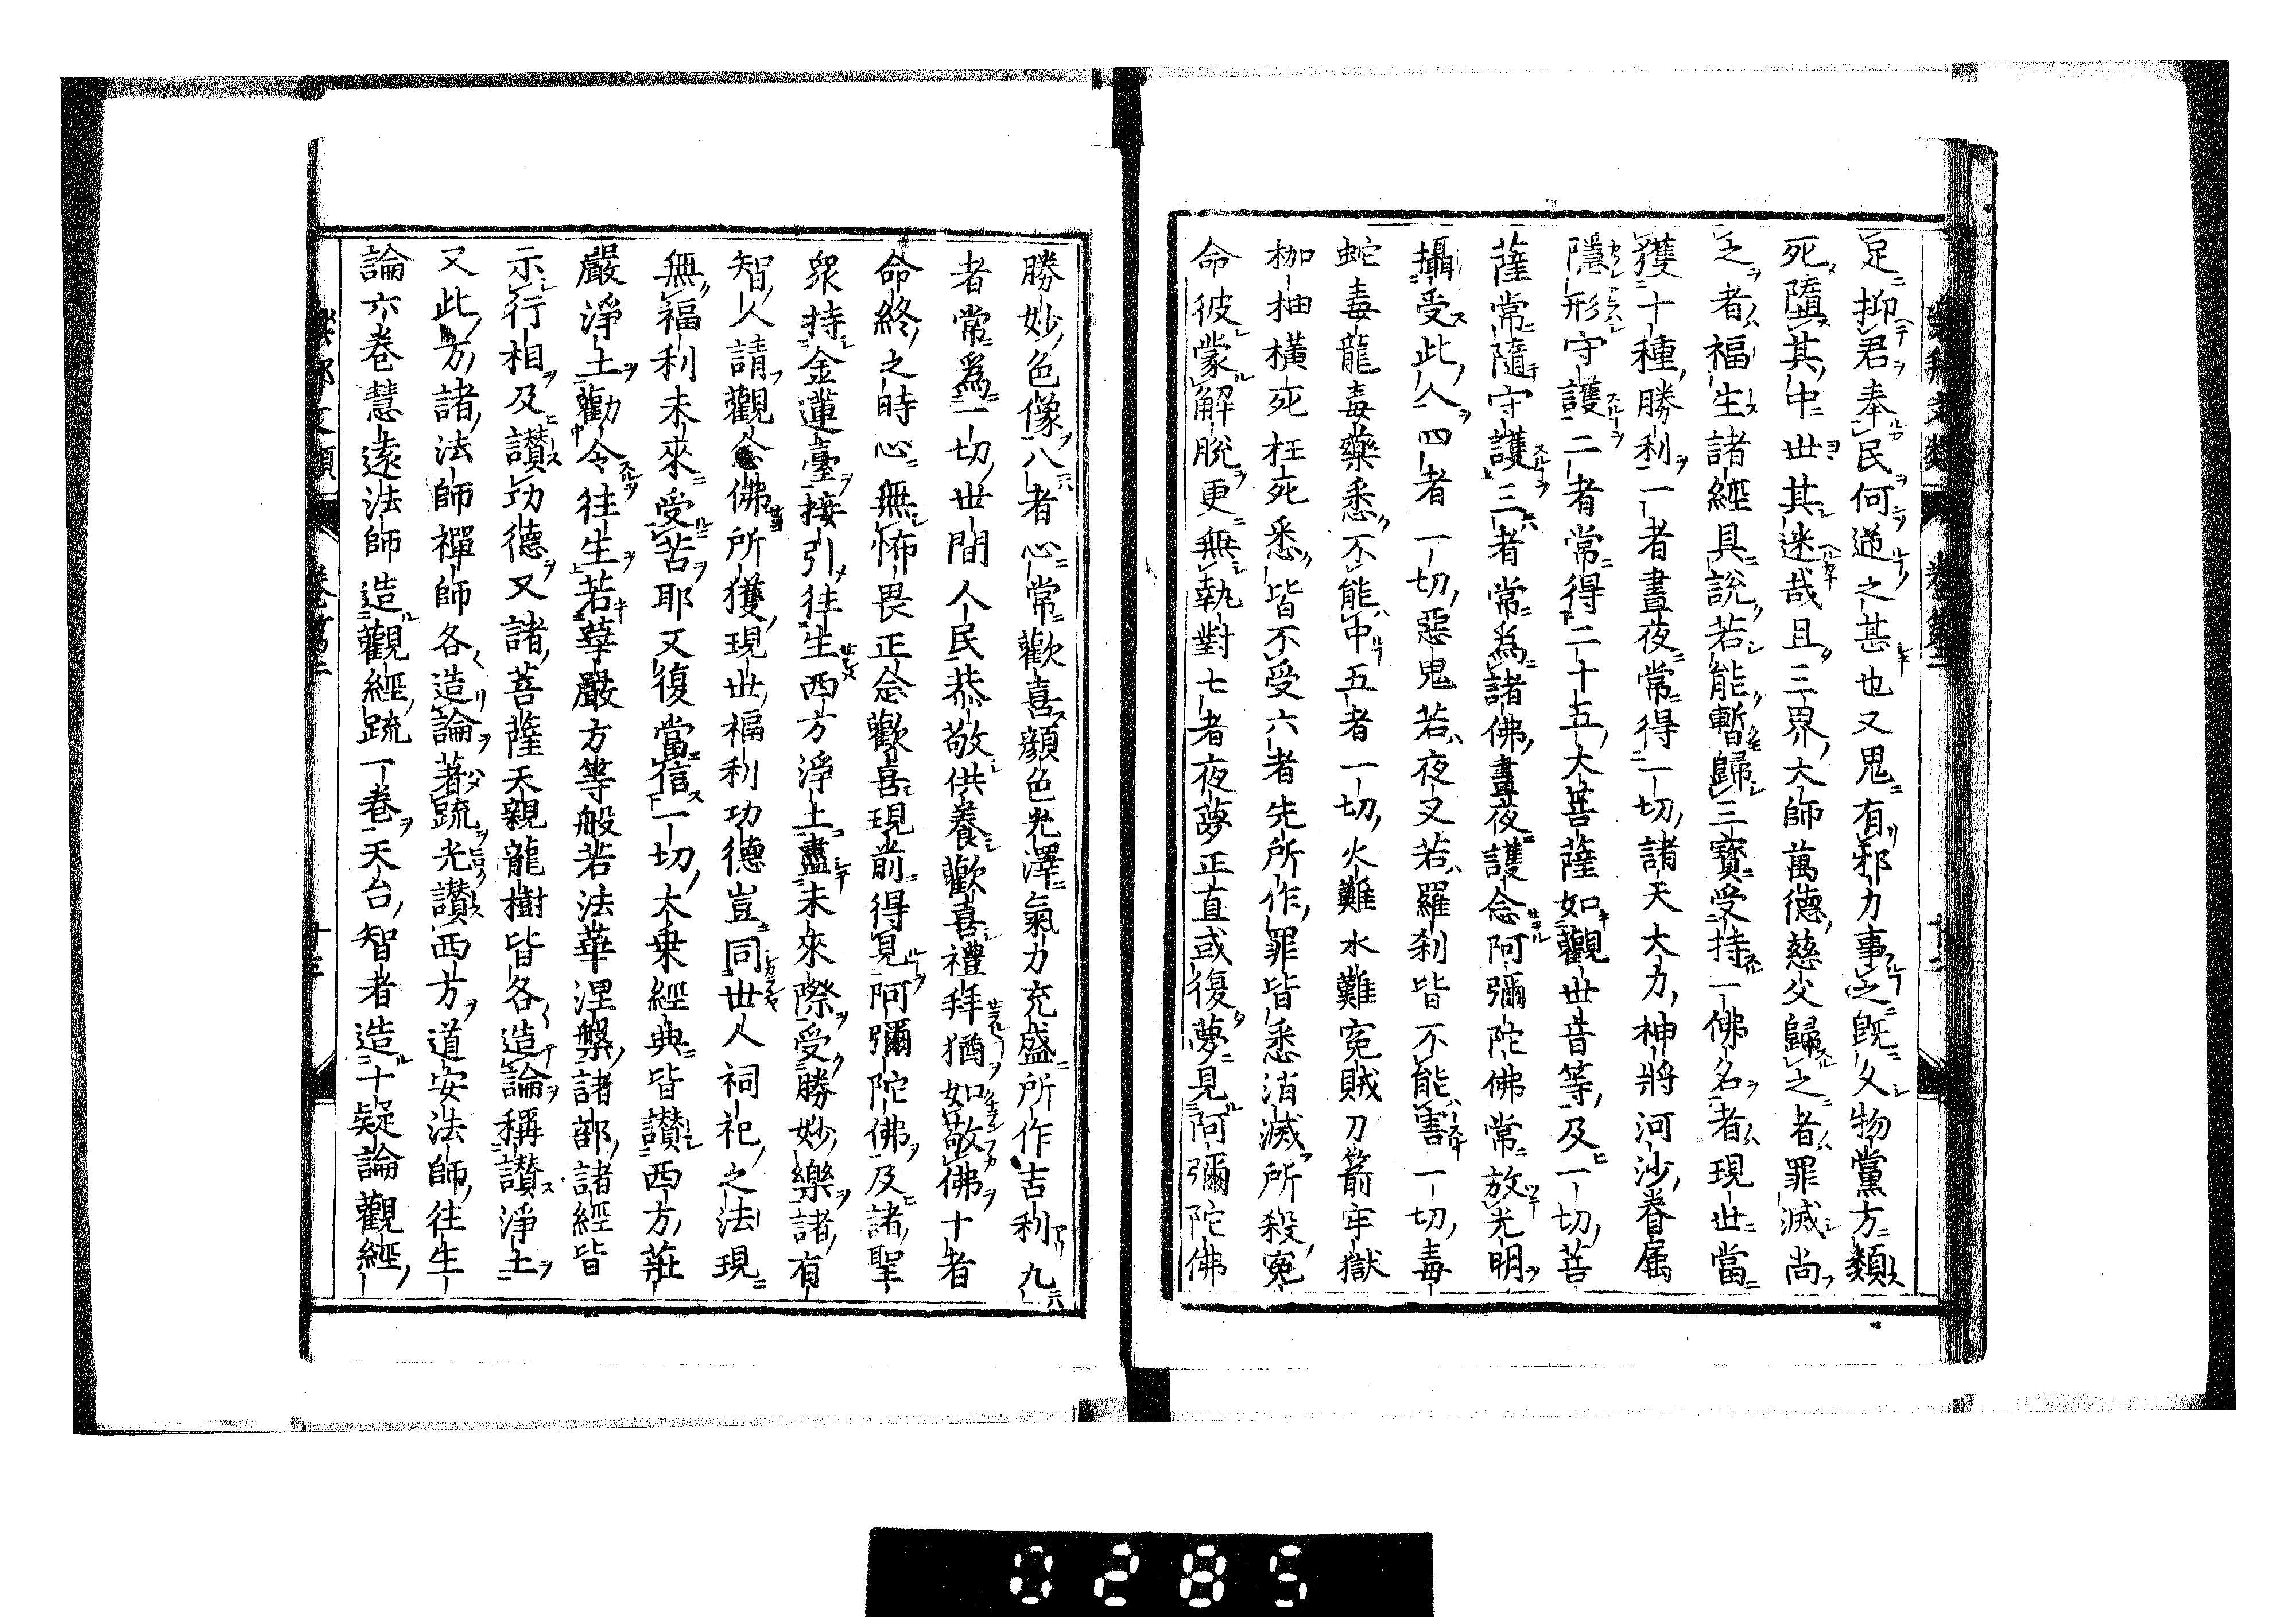 足抑君奉民何逆之甚也又鬼有邪力事之既久物黨方類
死墮其中世其迷哉且三界大師萬德慈父歸之者罪滅尚
之者福生諸經具說若能暫歸三寶受持一佛名者現世當
獲十種勝利一者晝夜常得一切諸天大力神將河沙眷屬
隱形守護二者常得二十五大菩薩如觀世音等及一切菩
薩常隨守護三者常為諸佛晝夜護念阿彌陀佛常放光明
攝受此人四者一切惡鬼若夜叉若羅刹皆不能害一切毒
蛇毒龍毒藥悉不能中五者一切火難水難寃賊刀箭牢獄
枷杻橫死枉死悉皆不受六者先所作罪皆悉消滅所殺寃
命彼蒙解脫更無執對七者夜夢正直或復夢見阿彌陀佛
勝妙色像八者心常歡喜顏色光澤氣力充盛所作吉利九
者常爲一切世間人民恭敬供養歡喜禮拜猶如敬佛十者
命終之時心無怖畏正念歡喜現前得見阿彌陀佛及諸聖
衆持金蓮臺接引往生西方淨土盡未來際受勝妙樂諸有
智人請觀念佛所獲現世福利功德豈同世人祠祀之法現
無福利未來受苦耶又復當信一切大乗經典皆讃西方莊
嚴淨土勸令往生若華嚴方等般若法華涅槃諸部諸經皆
示行相及讃功德又諸菩薩天親龍樹皆各造論稱讃淨土
又此方諸法師禪師各造論著疏光讃西方道安法師往生
論六卷慧遠法師造觀經疏一卷天台智者造十疑論觀經
樂邦文類 卷第二 廿三